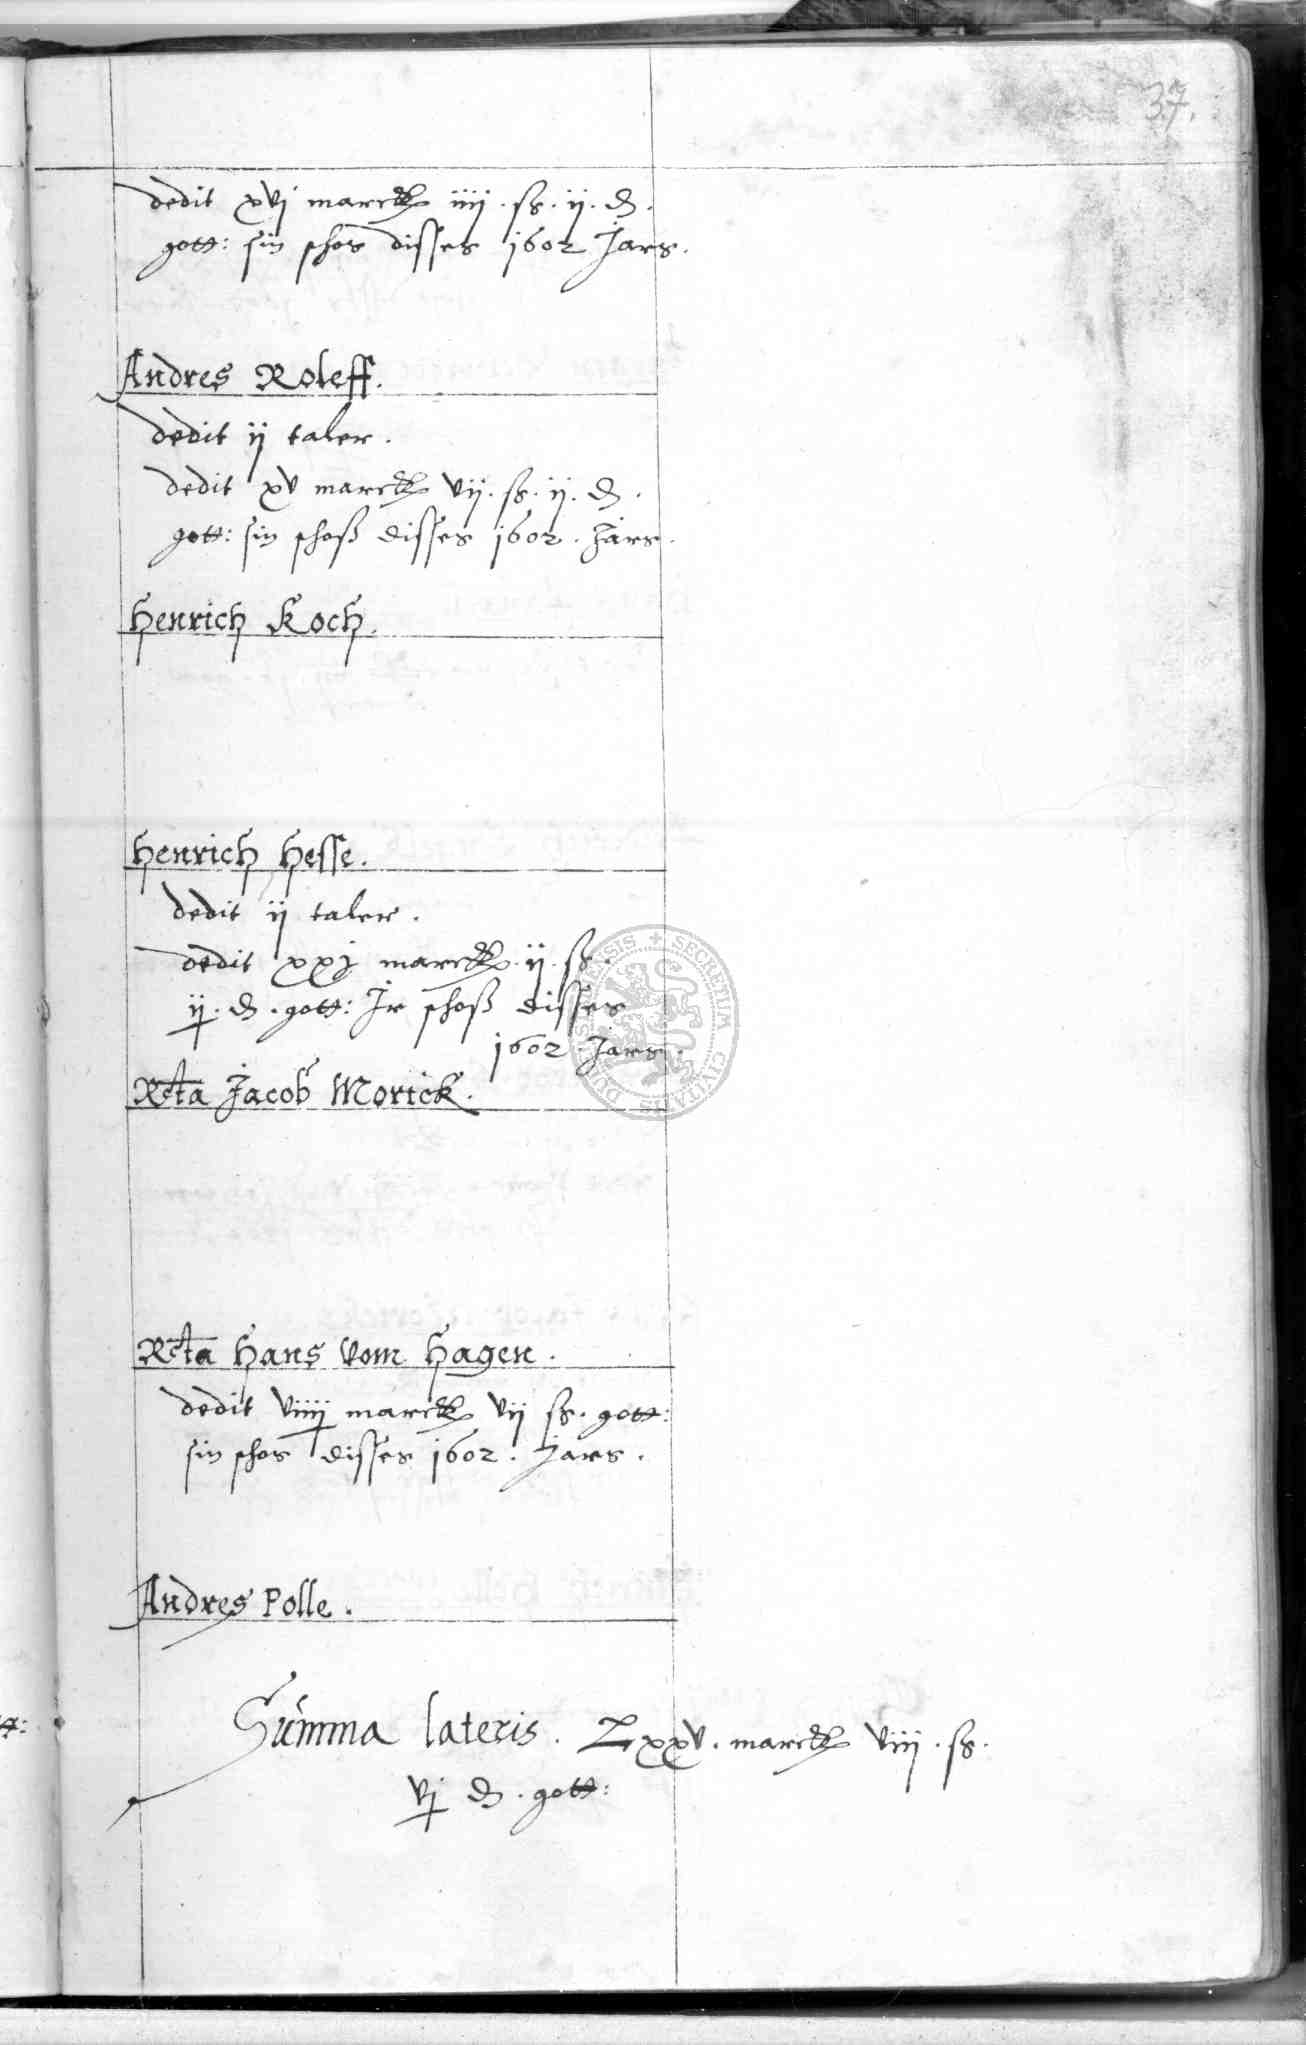 37.
dedit xvj marck iiij. ß. ij. d.
gott: sin schos disses 1602 Jars.
Andres Roleff.
dedit ij taler.
dedit xv marck vij. ß. ij. d.
gott: sin schoß disses 1602. Jars.
Henrich Koch.
Henrich Hesse.
dedit ij taler.
dedit xxj marck. ij. ß.
ij. d. gott: Jr schoß disses
1602. Jars.
Rcta Jacob Morick.
Rcta Hans vom Hagen.
dedit viiij marck vij ß. gott:
sin schos disses 1602. Jars.
Andres Polle.
Summa lateris. Lxxv. marck viij. ß.
vj d. gott:
SECRETUM CIVITATIS